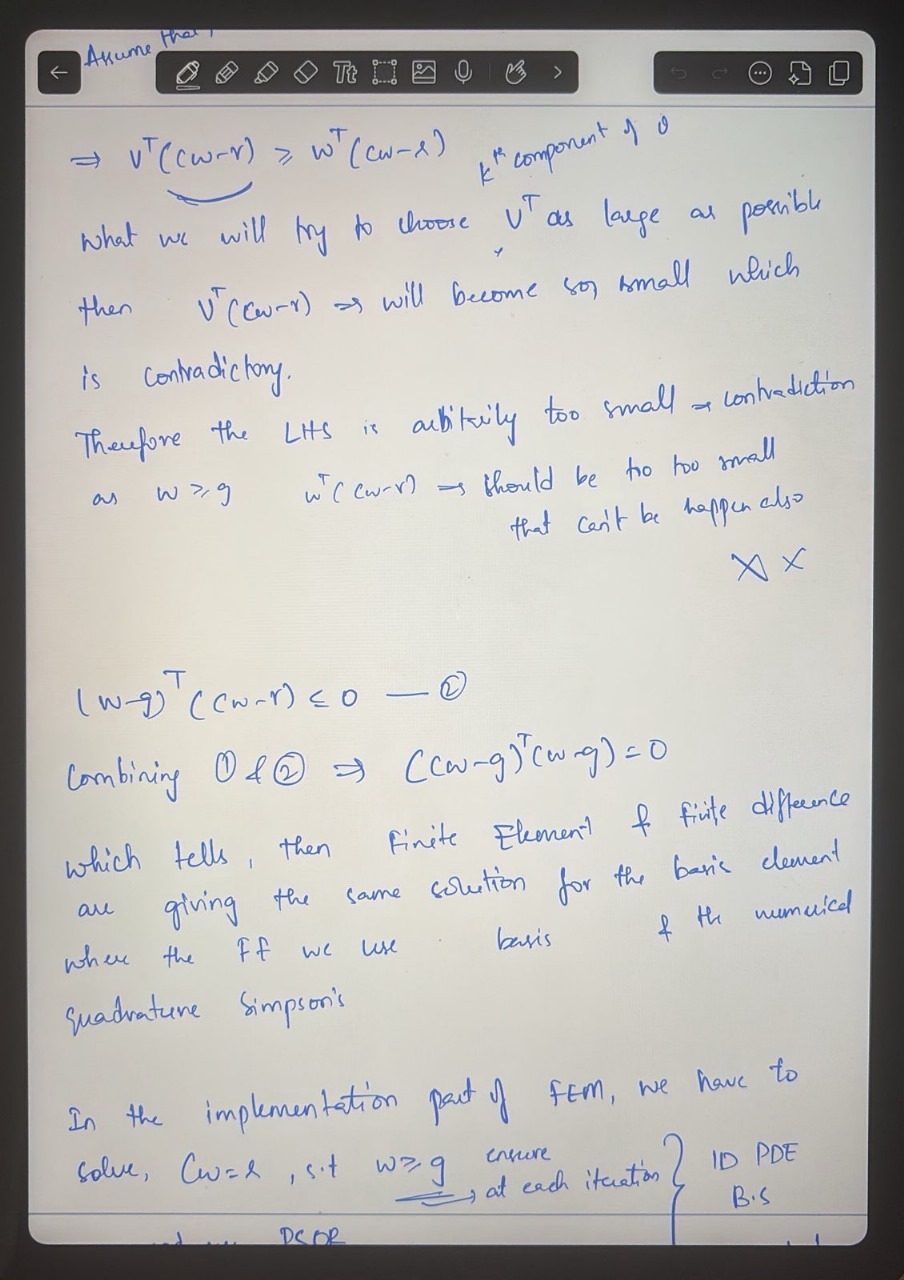 Assume that,
Tt
⇒ Vᵀ(Cw-r) ≥ wᵀ(Cw-r) kᵗʰ component of
What we will try to choose Vᵀ as large as possible
then Vᵀ(Cw-r) ⇒ will become so, small which
is contradictory.
Therefore the LHS is arbitrily too small → contradiction
as w ≥ g wᵀ(Cw-r) → should be too too small
that can't be happen also
(w-g)ᵀ(Cw-r) ≤ 0 — ②
Combining ① & ② ⇒ (Cw-g)ᵀ(w-g) = 0
which tells, then Finite Element & finite difference
are giving the same solution for the basis element
where the FF we use basis & the numerical
quadrature Simpson's
In the implementation part of FEM, we have to
solve, Cw=r, s.t w ≥ g ensure
→ at each iteration } 1D PDE
B.S